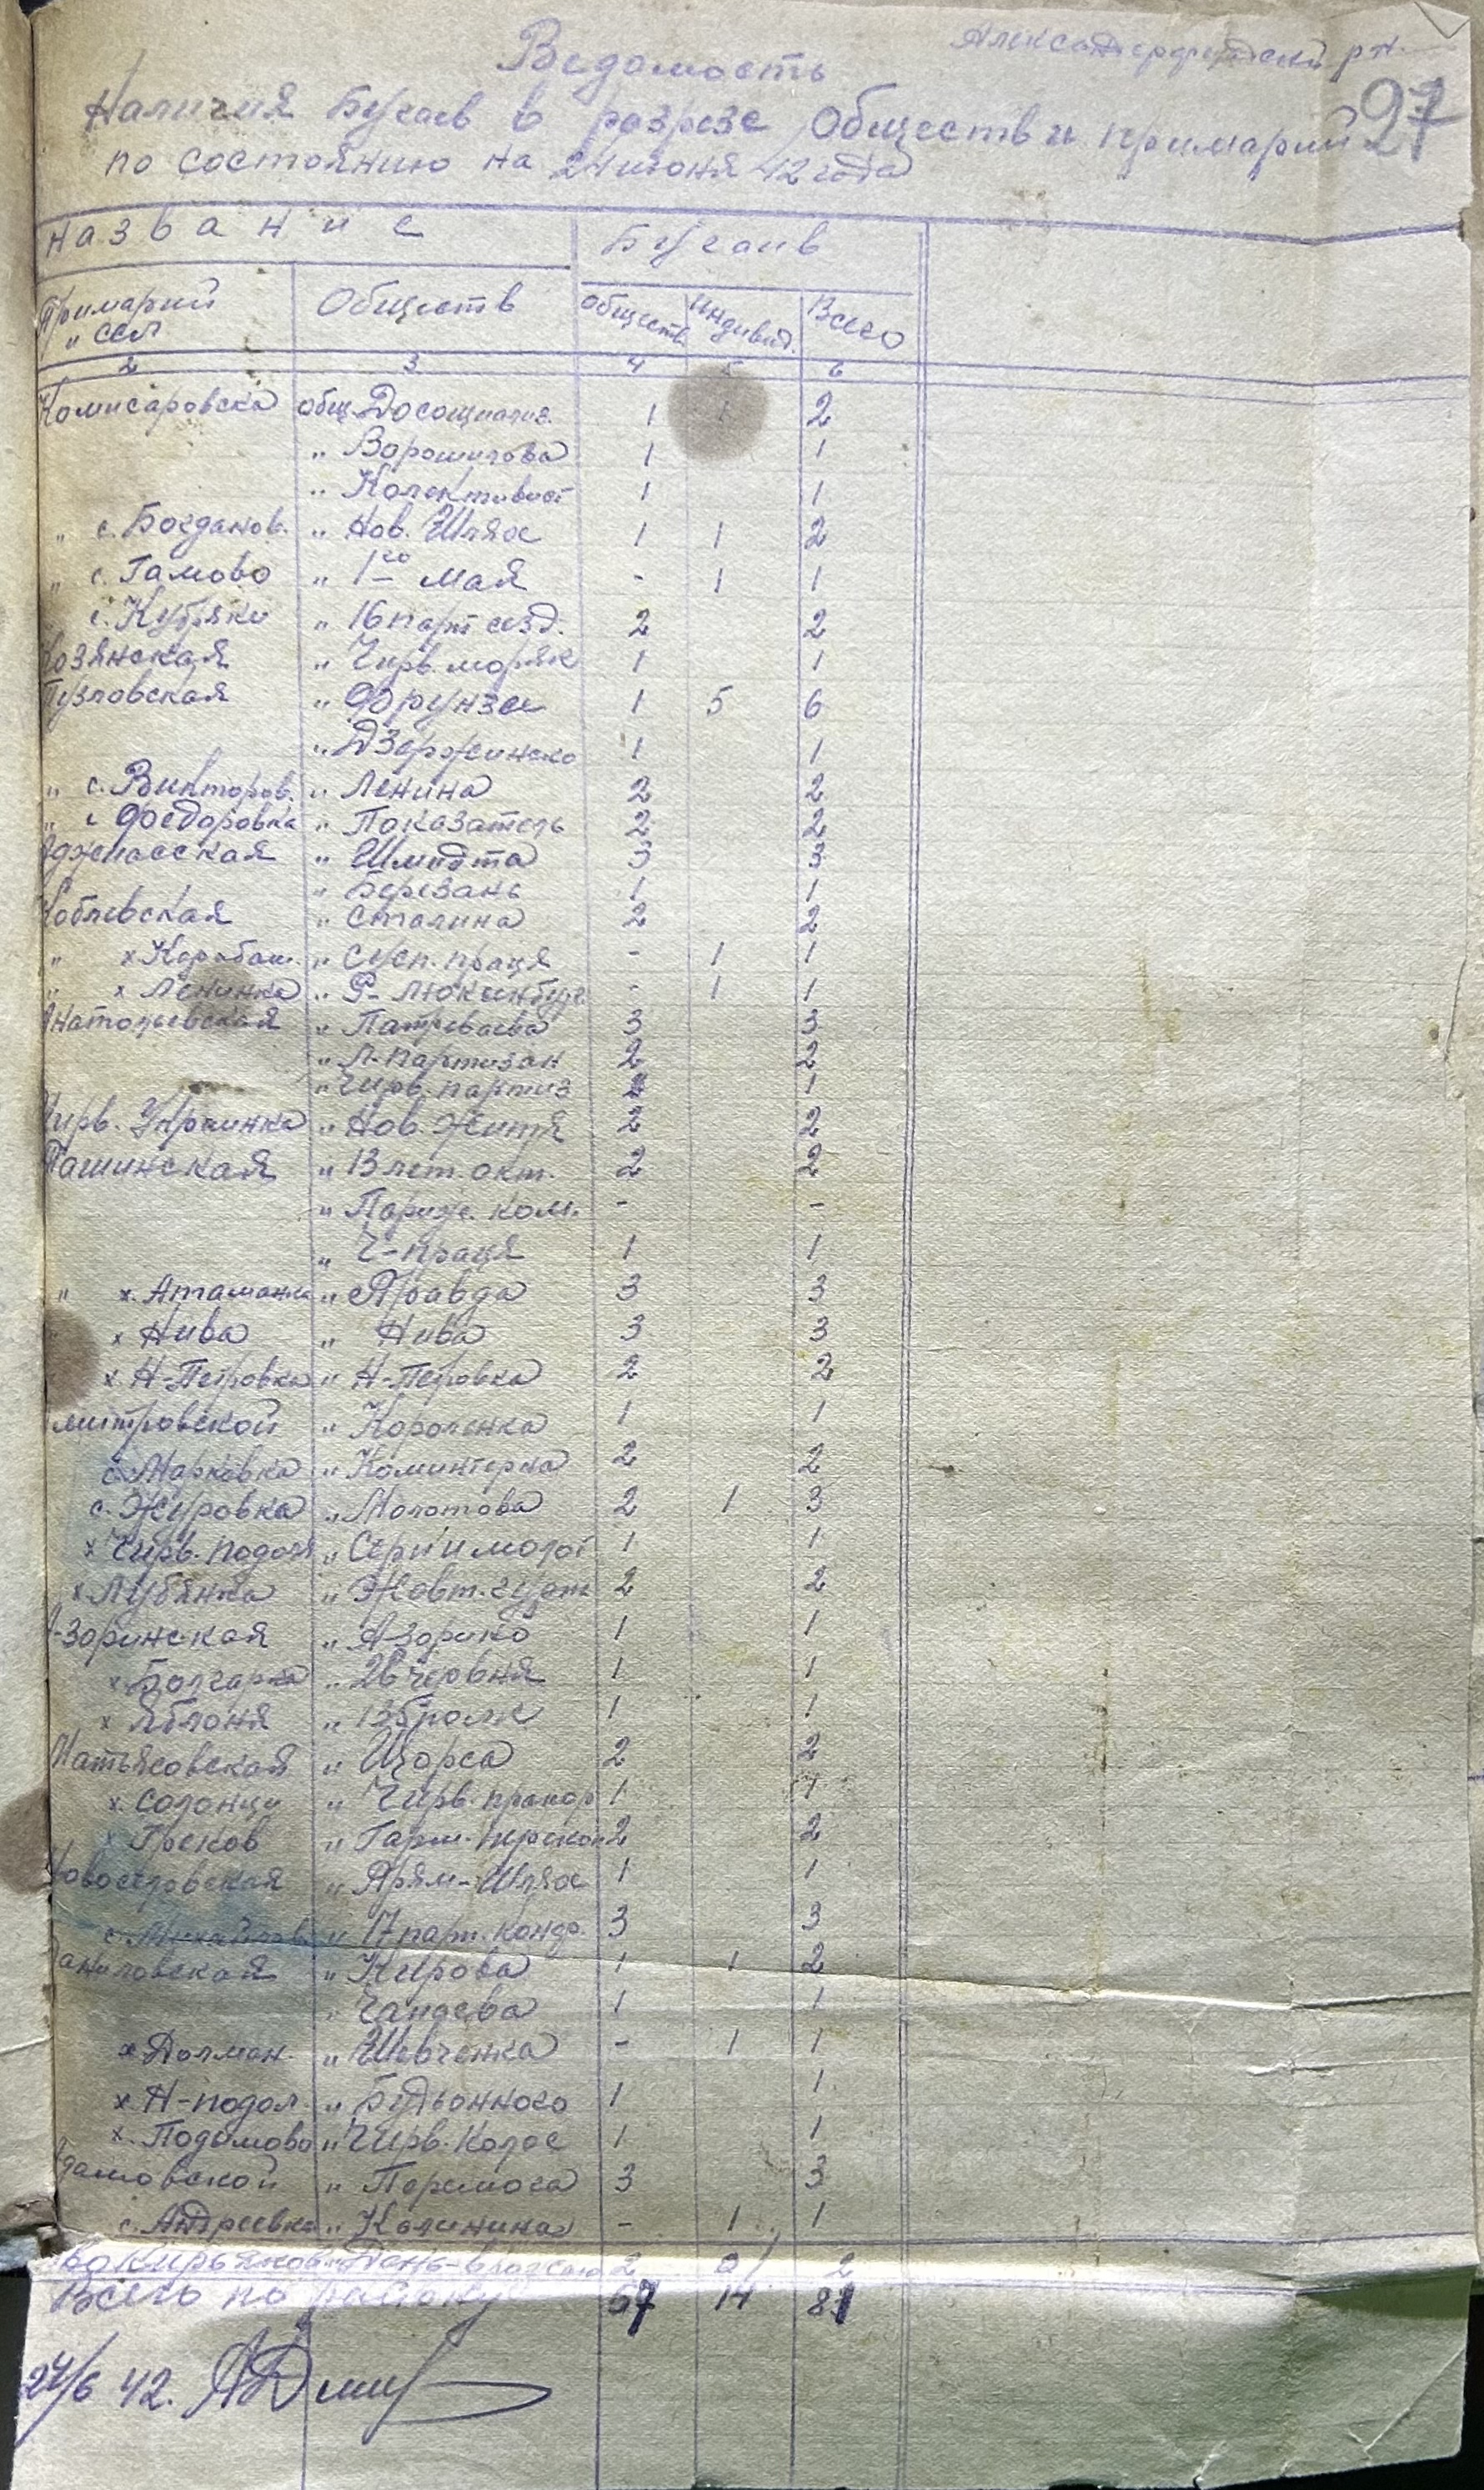 Александерфельдский р-н
27
Ведомость
Наличия Бугаев в розрезе Обществ и примарий
по состоянию на 24 июня 42 года
Название Бугаив
Примарий Обществ обществ. индивид. Всего
" сел
2 3 4 5 6
Комисаровска общ. Досоциализ. 1 1 2
" Ворошилова 1 1
" Колективист 1 1
" с. Богданов. " Нов. Шлях 1 1 2
" с. Гамово " 1го мая - 1 1
с. Кубряки " 16 парт сезд. 2 2
Козянская " Черв. моряк 1 1
Тузловская " Фрунзе 1 5 6
" Дзержинско 1 1
" с. Викторов. " Ленина 2 2
" с Федоровка " Показатель 2 2
Аджиасская " Шмидта 3 3
" Березань 1 1
Коблевская " Сталина 2 2
" х Карабаш. " Сусп. праця - 1 1
" х Ленинка " Р-Люксенбург - 1 1
Анатольевская " Патреваева 3 3
" Л-партизан 2 2
" Черв. партиз 1
Чирв. Украинка " Нов. Життя 2 2
Ташинская " 13 лет. окт. 2 2
" Париж. ком. - -
" Ч-праця 1 1
" х. Атаманка " Правда 3 3
" х Нива " Нива 3 3
х. Н-Петровка " Н-Петровка 2 2
митровской " Короленка 1 1
с. Марковка " Коминтерна 2 2
с. Журовка " Молотова 2 1 3
х Чирв. подоля " Серп и молот 1 1
х Лубянка " Жовт. 2 2
-зоринская " А-зорико 1 1
х Болгарка " 26 червня 1 1
х Яблоня " 1 1
Матьясовская " Щорса 2 2
х. Солонци " Чирв. прапор 1 1
х Греков " Гарм. 2 2
Новоселовская " Прям-Шлях 1 1
с. " 17 парт. конф. 3 3
Даниловская " Кирова 1 1 2
" Чапаева 1 1
х Долман. " Шевченка - 1 1
х Н-подол. " Будьонного 1 1
х. Подимово " Чирв. Колос 1 1
Адамовской " Перемога 3 3
с. Андреевка " Калинина - 1 1
2 2
Всего по району 67 14 81
24/6 42.